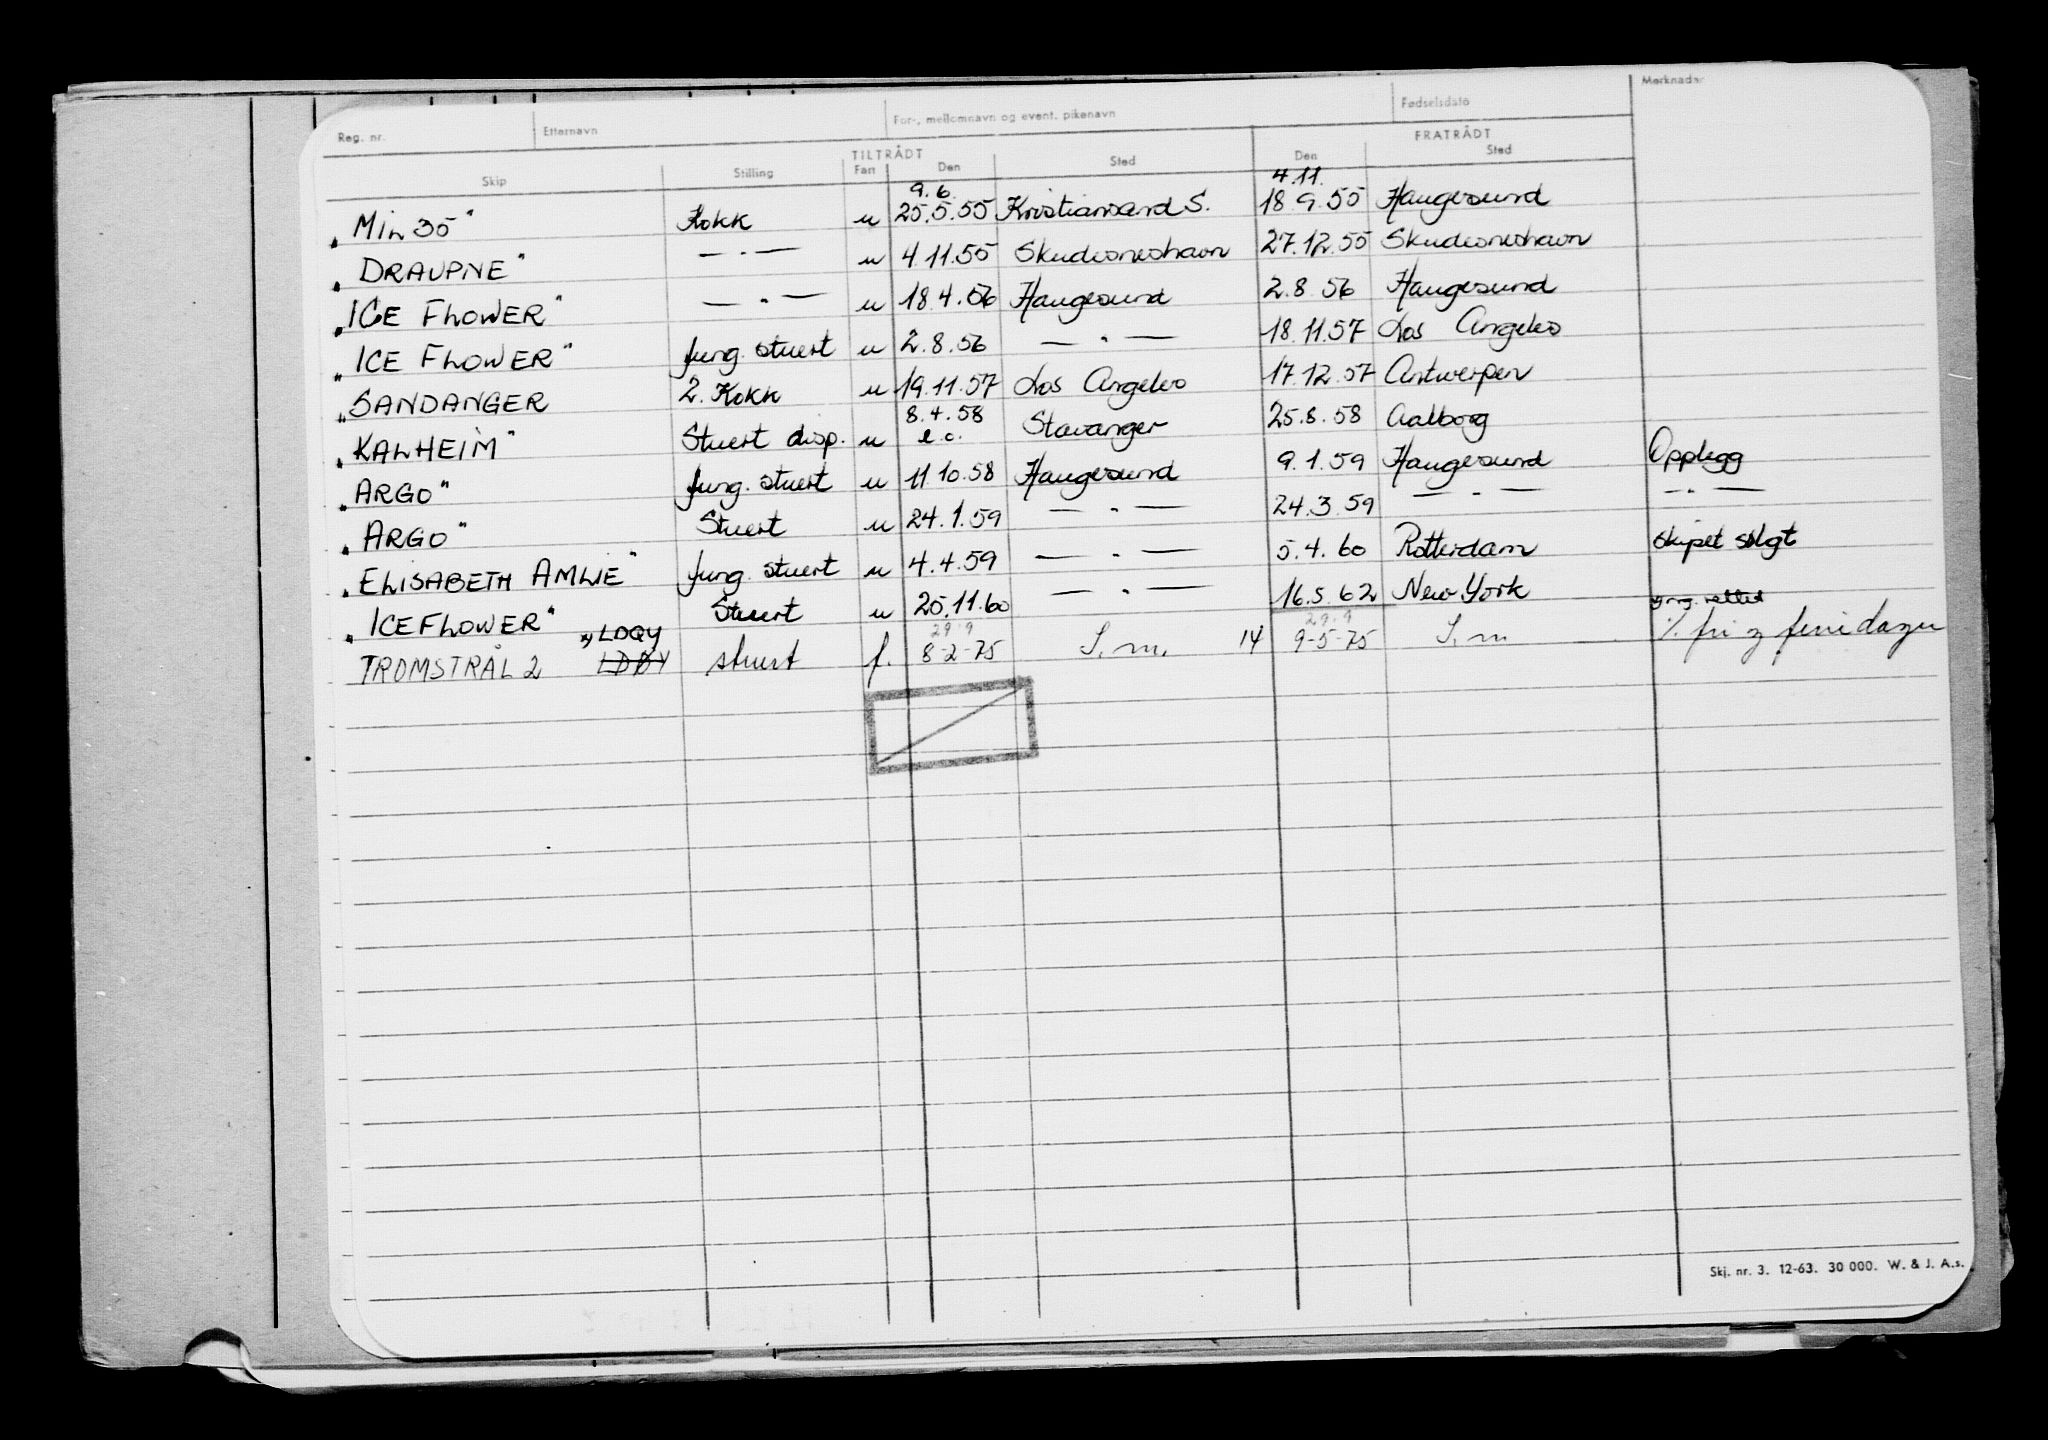 Reg. nr. Etternavn For-, mellomnavn og event. pikenavn Fødselsdato Merknader
TILTRÅDT FRATRÅDT
Skip Stilling Fart Den Sted Den Sted
9.6. 4.11.
"MIL 35" Kokk u 25.5.55 Kristiansand S. 18.9.55 Haugesund
"DRAUPNE" — " — u 4.11.55 Skudesneshavn 27.12.55 Skudesneshavn
"ICE FLOWER" — " — u 18.4.56 Haugesund 2.8.56 Haugesund
"ICE FLOWER" fung. stuert u 2.8.56 — " — 18.11.57 Los Angeles
"SANDANGER 2. Kokk u 19.11.57 Los Angeles 17.12.57 Antwerpen
"KALHEIM" Stuert disp. u 8.4.58 e.c. Stavanger 25.8.58 Aalborg
"ARGO" fung. stuert u 11.10.58 Haugesund 9.1.59 Haugesund Opplegg
"ARGO" Stuert u 24.1.59 — " — 24.3.59 — " — — " —
"ELISABETH AMLIE" fung. stuert u 4.4.59 — " — 5.4.60 Rotterdam skipet solgt
"ICEFLOWER" Stuert u 25.11.60 — " — 16.5.62 New York
"LDQY 29.9 29.9
TROMSTRÅL 2 LDBY stuert f. 8-2-75 S.m. 14 9-5-75 S.m % fri z feriedager
Skj. nr. 3. 12-63. 30 000. W. & J. A.s.